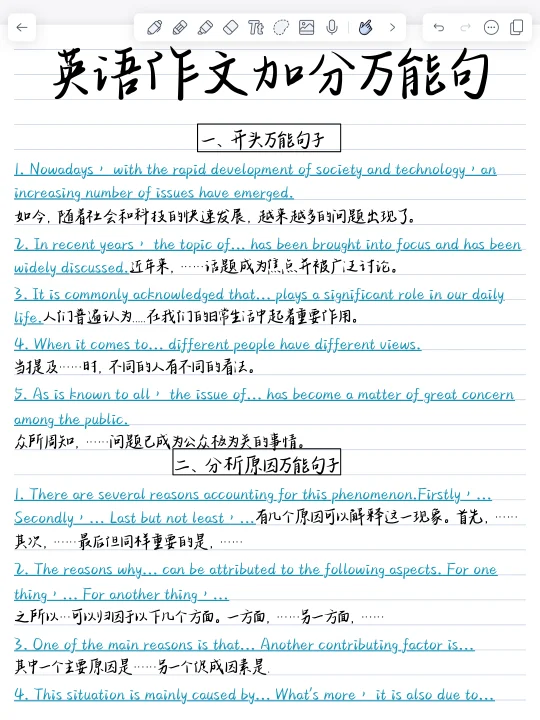 英语作文加分万能句
一、开头万能句子
1. Nowadays， with the rapid development of society and technology，an
increasing number of issues have emerged.
如今, 随着社会和科技的快速发展, 越来越多的问题出现了。
2. In recent years， the topic of... has been brought into focus and has been
widely discussed.近年来, ……话题成为焦点并被广泛讨论。
3. It is commonly acknowledged that... plays a significant role in our daily
life.人们普遍认为.....在我们的日常生活中起着重要作用。
4. When it comes to... different people have different views.
当提及……时, 不同的人有不同的看法。
5. As is known to all， the issue of... has become a matter of great concern
among the public.
众所周知, ……问题已成为公众极为关的事情。
二、分析原因万能句子
1. There are several reasons accounting for this phenomenon.Firstly，...
Secondly，... Last but not least，...有几个原因可以解释这一现象。首先, ……
其次, ……最后但同样重要的是, ……
2. The reasons why... can be attributed to the following aspects. For one
thing，... For another thing，...
之所以…可以归因于以下几个方面。一方面, ……另一方面, ……
3. One of the main reasons is that... Another contributing factor is...
其中一个主要原因是……另一个促成因素是.
4. This situation is mainly caused by... What's more， it is also due to...